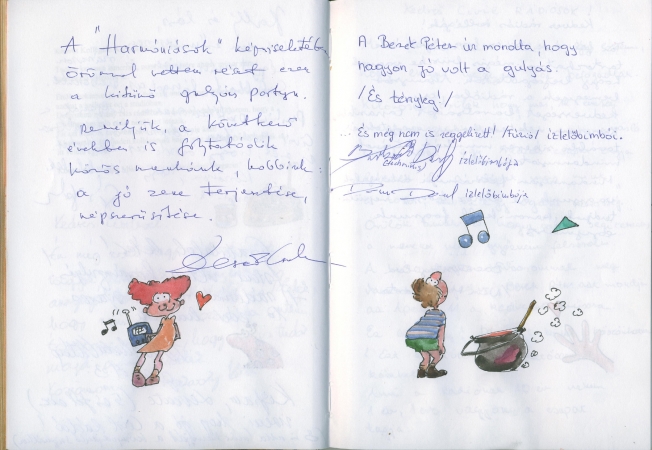 A "Harmóniások" képviseletében
örömmel vettem részt ezen
a kitűnő gulyás partyn.
Reméljük, a következő
években is folytatódik
közös munkánk, hobbink:
a jó zene terjesztése,
népszerűsítése.
A Bezek Péter úr mondta, hogy
nagyon jó volt a gulyás.
/És tényleg!/
...És még nem is reggelizett! /Fúzió/ ízlelőbimbói.
ízlelőbimbója
ízlelőbimbója